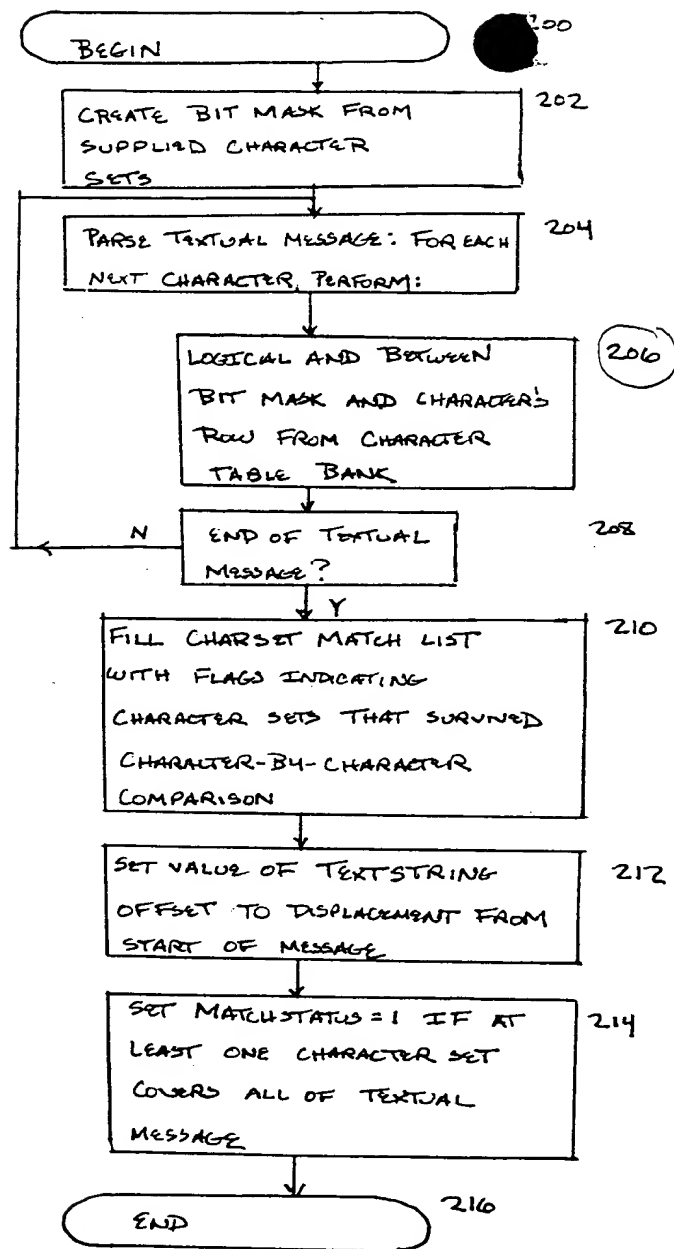 BEGIN
200
CREATE BIT MASK FROM
SUPPLIED CHARACTER
SETS
202
PARSE TEXTUAL MESSAGE: FOR EACH
NEXT CHARACTER, PERFORM:
204
LOGICAL AND BETWEEN
BIT MASK AND CHARACTER'S
ROW FROM CHARACTER
TABLE BANK
206
END OF TEXTUAL
MESSAGE?
208
N
Y
FILL CHARSET MATCH LIST
WITH FLAGS INDICATING
CHARACTER SETS THAT SURVIVED
CHARACTER-BY-CHARACTER
COMPARISON
210
SET VALUE OF TEXTSTRING
OFFSET TO DISPLACEMENT FROM
START OF MESSAGE
212
SET MATCHSTATUS = 1 IF AT
LEAST ONE CHARACTER SET
COVERS ALL OF TEXTUAL
MESSAGE
214
END
216